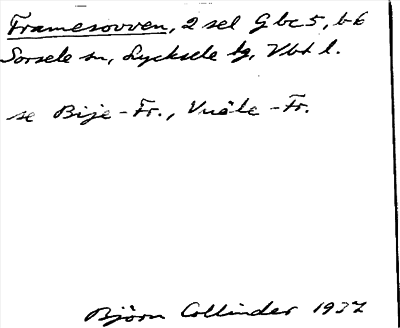 Framesovven, 2 sel G bc 5, b 6
Sorsele sn, Lycksele lg, Vbt l.
se Bije-Fr., Vuåle-Fr.
Björn Collinder 1937